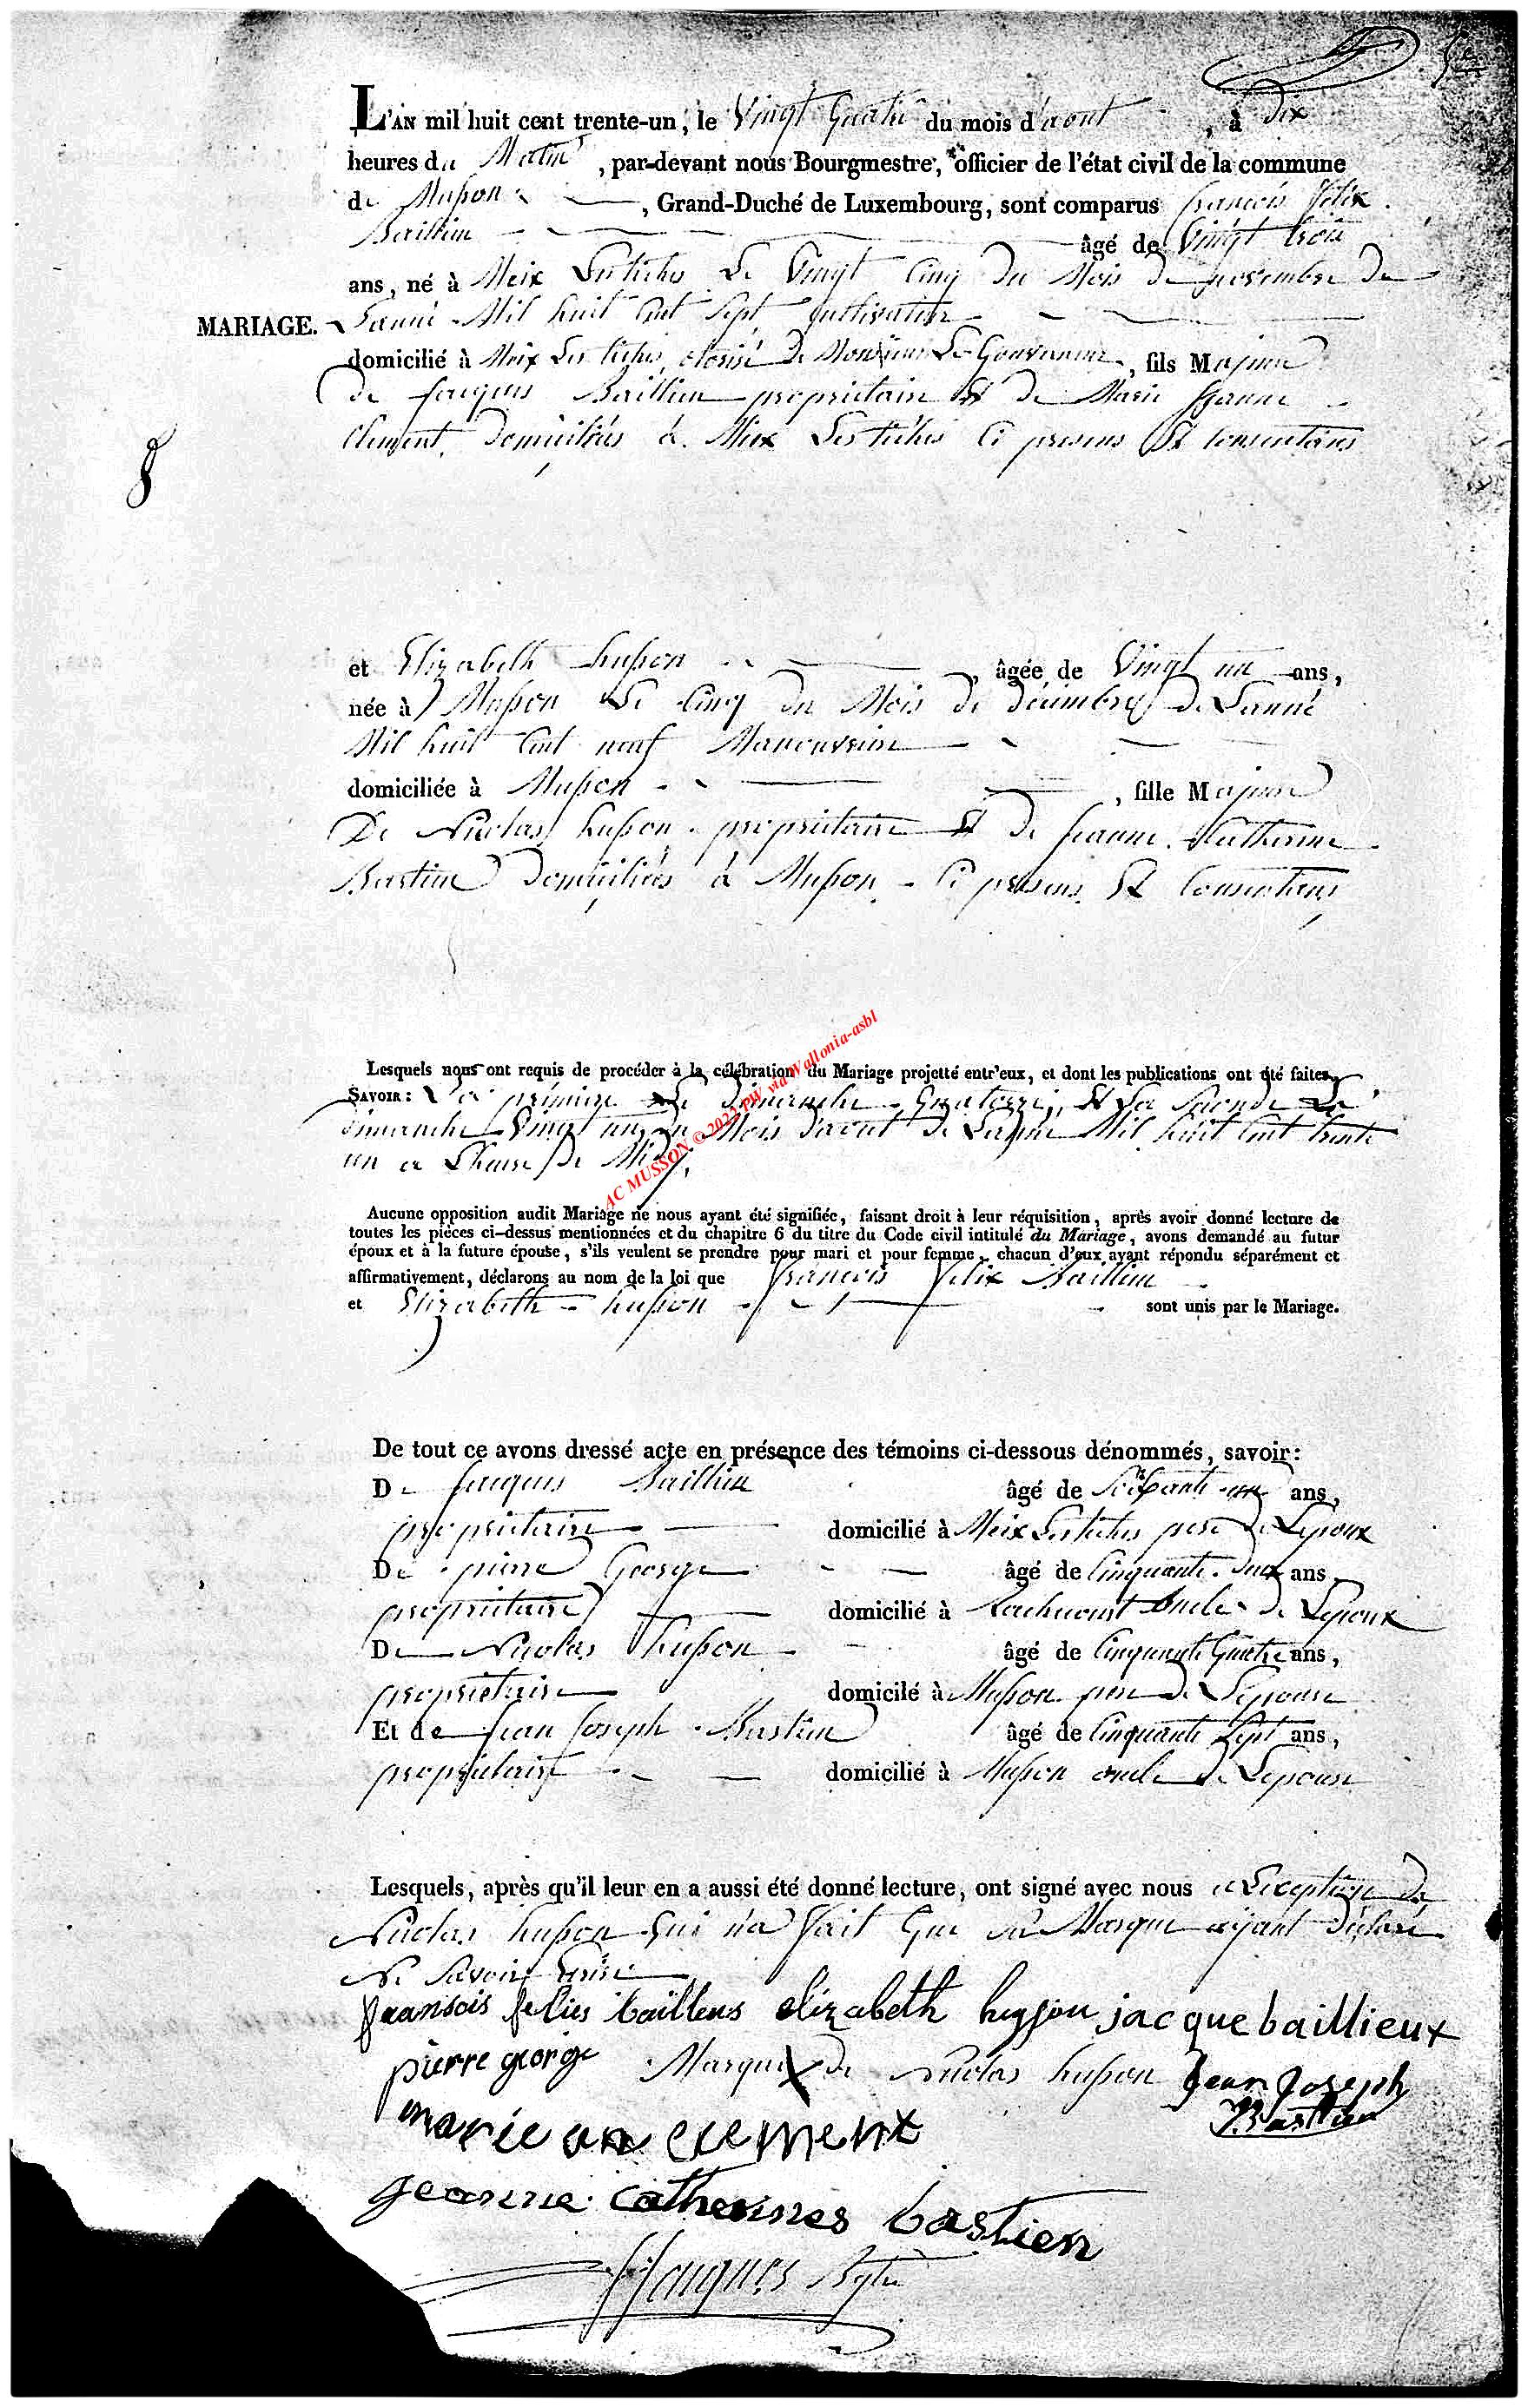 L'AN mil huit cent trente-un, le Vingt Quatre du mois d'aout, à dix
heures du Matin, par-devant nous Bourgmestre, officier de l'état civil de la commune
de Musson, Grand-Duché de Luxembourg, sont comparus francois félix
Baillieu âgé de Vingt trois
ans, né à Meix Le Vingt Cinq du Mois de novembre de
MARIAGE. Lanné Mil huit Cent Sept Cultivateur
domicilié à Meix, de Monsieur Le Gouverneur, fils Majeur
de Jacques Baillieu propriétaire Et de Marie Jeanne
Clement, domiciliés à Meix Ci presens Et consentans
et Elizabeth husson, âgée de Vingt un ans,
née à Musson Le Cinq du Mois de décembre de Lanné
Mil huit Cent neuf Manouvrière
domiciliée à Musson, fille Majeure
De Nicolas husson propriétaire Et de jeanne Catherine
Bastien domiciliés à Musson Ci presens Et Consentans
Lesquels nous ont requis de procéder à la célébration du Mariage projetté entr'eux, et dont les publications ont été faites,
SAVOIR : La première Le dimanche Quatorze, Et La Seconde Le
dimanche Vingt un du Mois daout de Lanné Mil huit Cent trente
un a Lheure de Midi.
AC MUSSON © 2022 PW via Wallonia-asbl
Aucune opposition audit Mariage ne nous ayant été signifiée, faisant droit à leur réquisition, après avoir donné lecture de
toutes les pièces ci-dessus mentionnées et du chapitre 6 du titre du Code civil intitulé du Mariage, avons demandé au futur
époux et à la future épouse, s'ils veulent se prendre pour mari et pour femme, chacun d'eux ayant répondu séparément et
affirmativement, déclarons au nom de la loi que francois félix Baillieu
et Elizabeth husson sont unis par le Mariage.
De tout ce avons dressé acte en présence des témoins ci-dessous dénommés, savoir :
De Jacques Baillieu âgé de Soixante un ans,
propriétaire domicilié à Meix père de Lepoux
De pierre George âgé de Cinquante deux ans
propriétaire domicilié à Rachecourt oncle de Lepoux
De Nicolas husson âgé de Cinquante Quatre ans,
propriétaire domicilé à Musson père de Lepouse
Et de Jean Joseph Bastien âgé de Cinquante Sept ans,
propriétaire domicilié à Musson oncle de Lepouse
Lesquels, après qu'il leur en a aussi été donné lecture, ont signé avec nous a Lexception de
Nicolas husson qui n'a fait que sa Marque ayant déclaré
Ne Savoir Ecrire
fransois felies baillieus elizabeth husson jacque baillieux
pierre george Marque X de Nicolas husson Jean Joseph
Bastien
marie an clement
jeanne catherines bastien